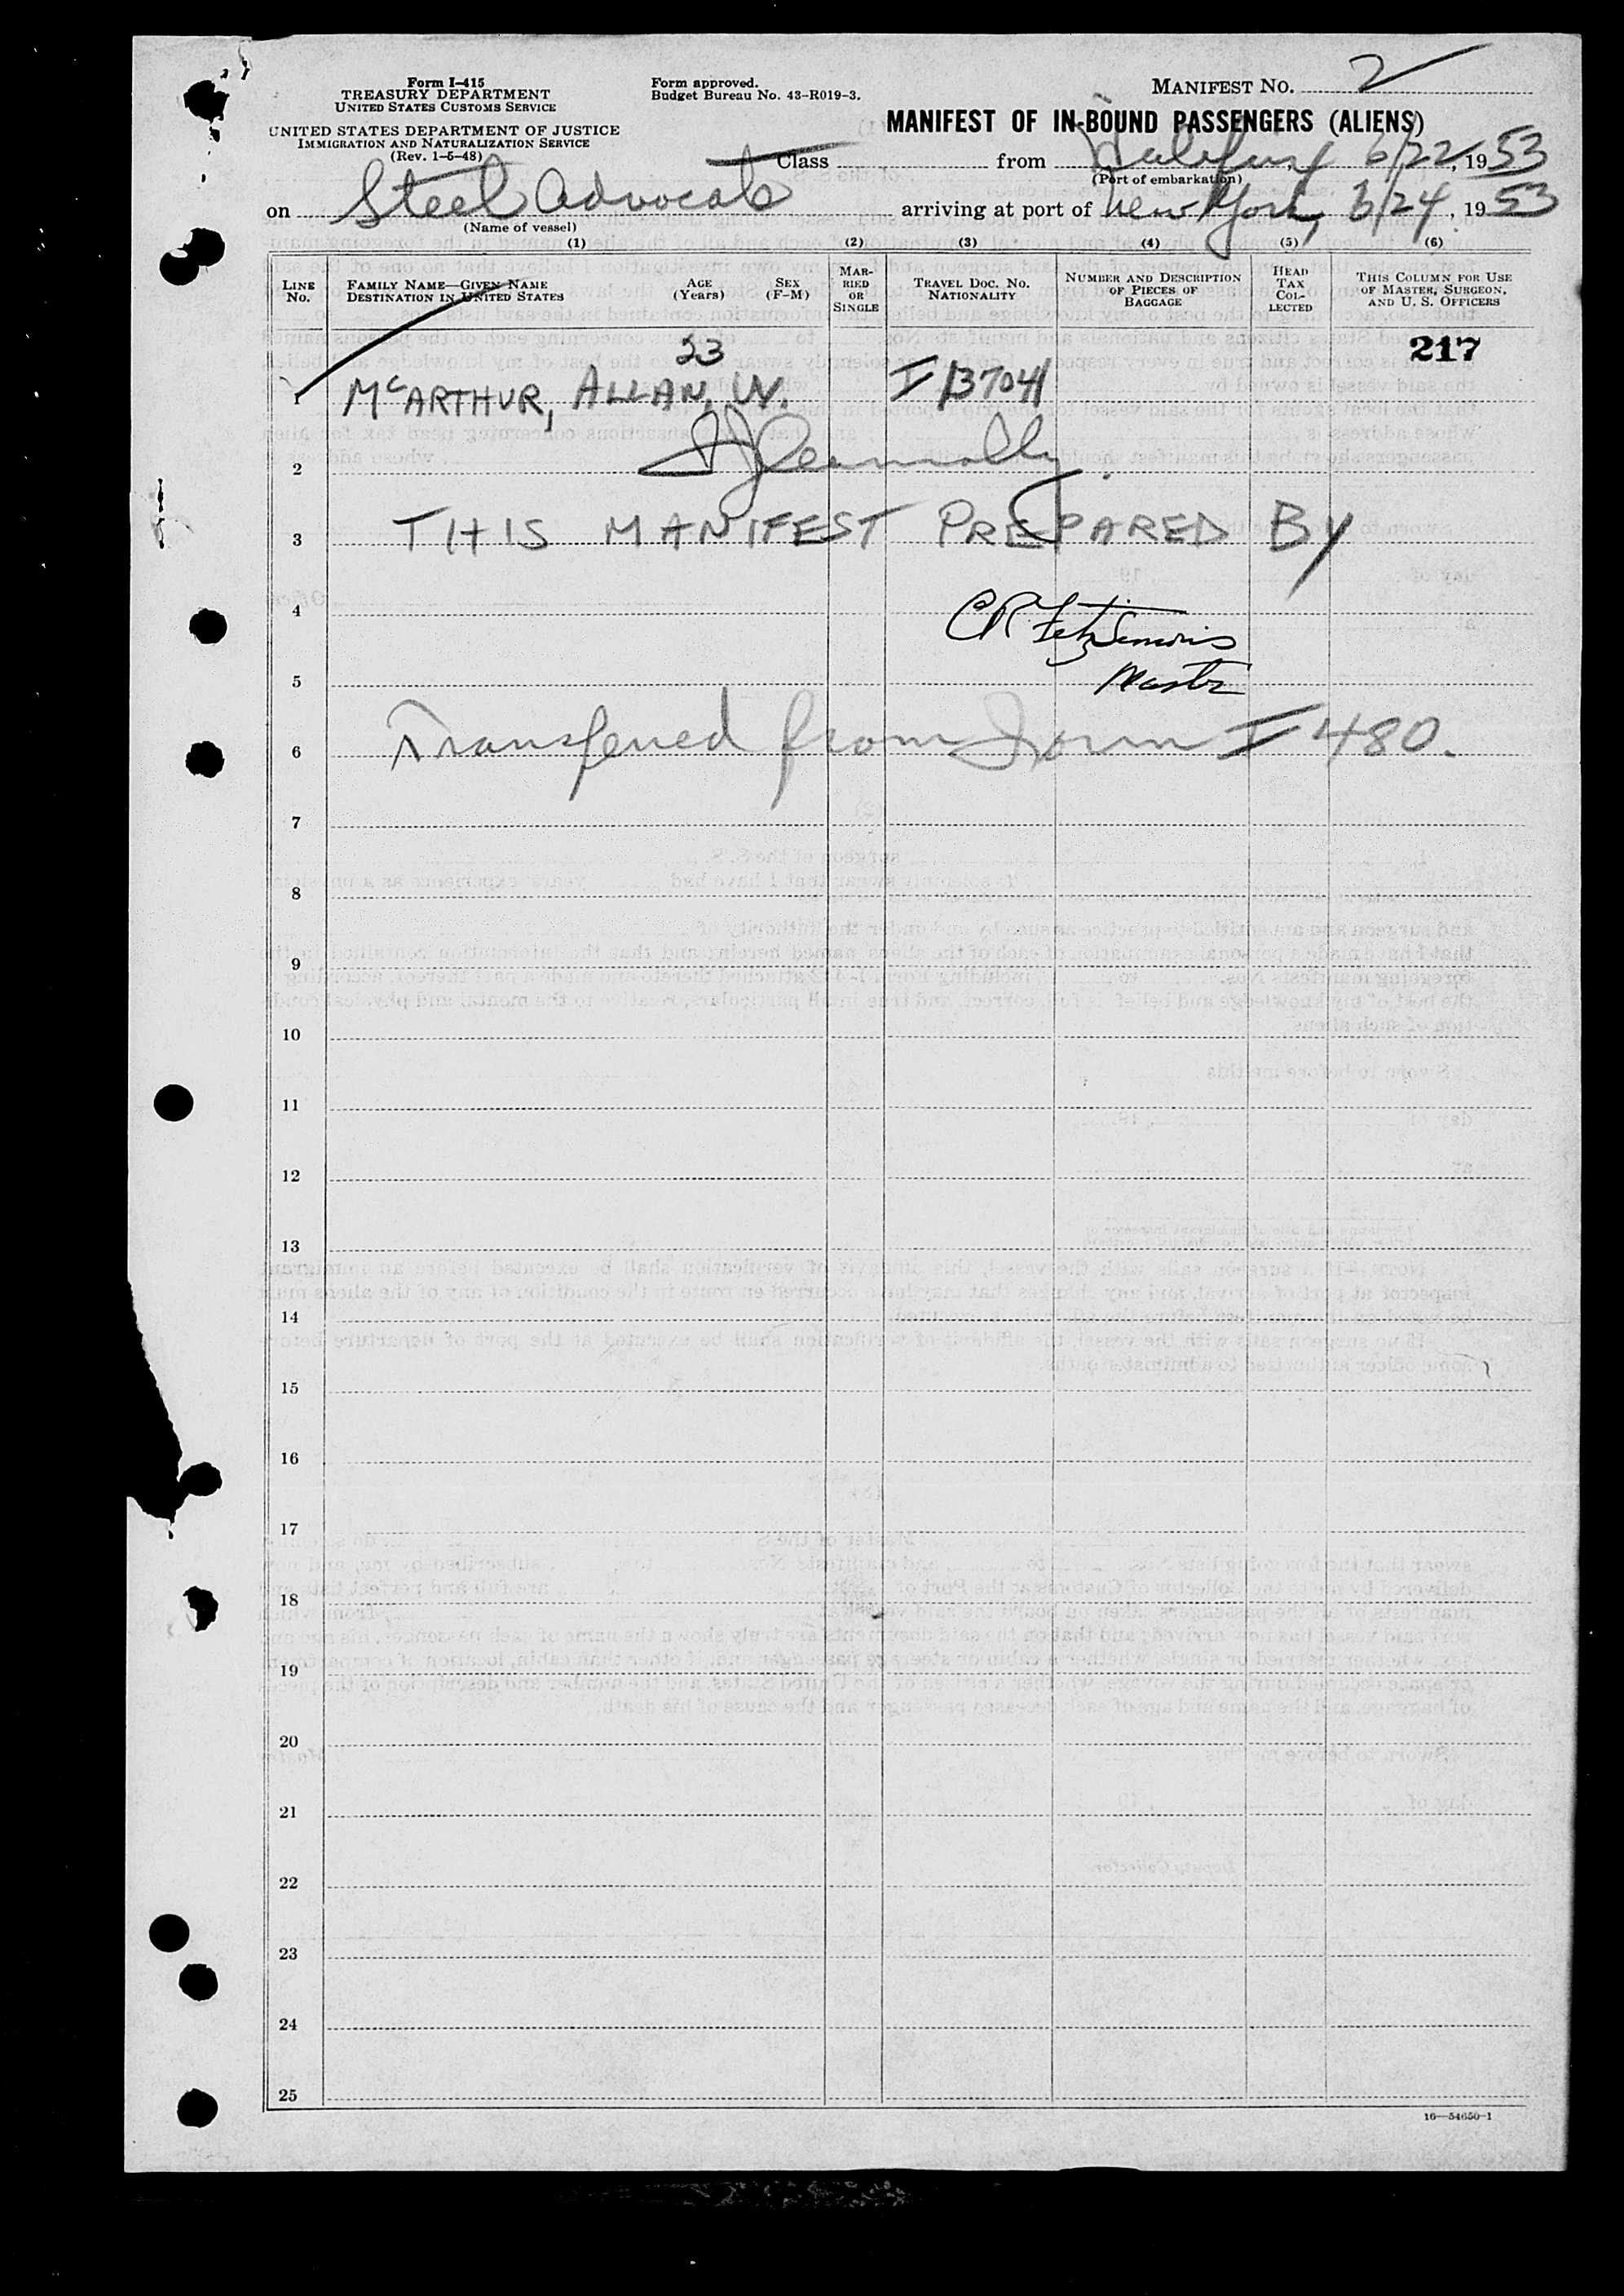 Form I-415
TREASURY DEPARTMENT
UNITED STATES CUSTOMS SERVICE
UNITED STATES DEPARTMENT OF JUSTICE
IMMIGRATION AND NATURALIZATION SERVICE
(Rev. 1-5-48)
Form approved.
Budget Bureau No. 43-R019-3.
MANIFEST NO. 2
MANIFEST OF IN-BOUND PASSENGERS (ALIENS)
Class from Halifax, 6/22, 1953
(Port of embarkation)
on Steel Advocate arriving at port of New York, 6/24, 1953
(Name of vessel)
(1) (2) (3) (4) (5) (6)
LINE No. FAMILY NAME—GIVEN NAME DESTINATION IN UNITED STATES AGE (Years) SEX (F-M) MARRIED OR SINGLE TRAVEL DOC. NO. NATIONALITY NUMBER AND DESCRIPTION OF PIECES OF BAGGAGE HEAD TAX COLLECTED THIS COLUMN FOR USE OF MASTER, SURGEON, AND U. S. OFFICERS
23 217
1 McARTHUR, ALLAN, W. I 13704
2
3 THIS MANIFEST PREPARED BY
4 CR Fitzsimons
5 Master
6 Transferred from Form I 480.
7
8
9
10
11
12
13
14
15
16
17
18
19
20
21
22
23
24
25
16—54650-1